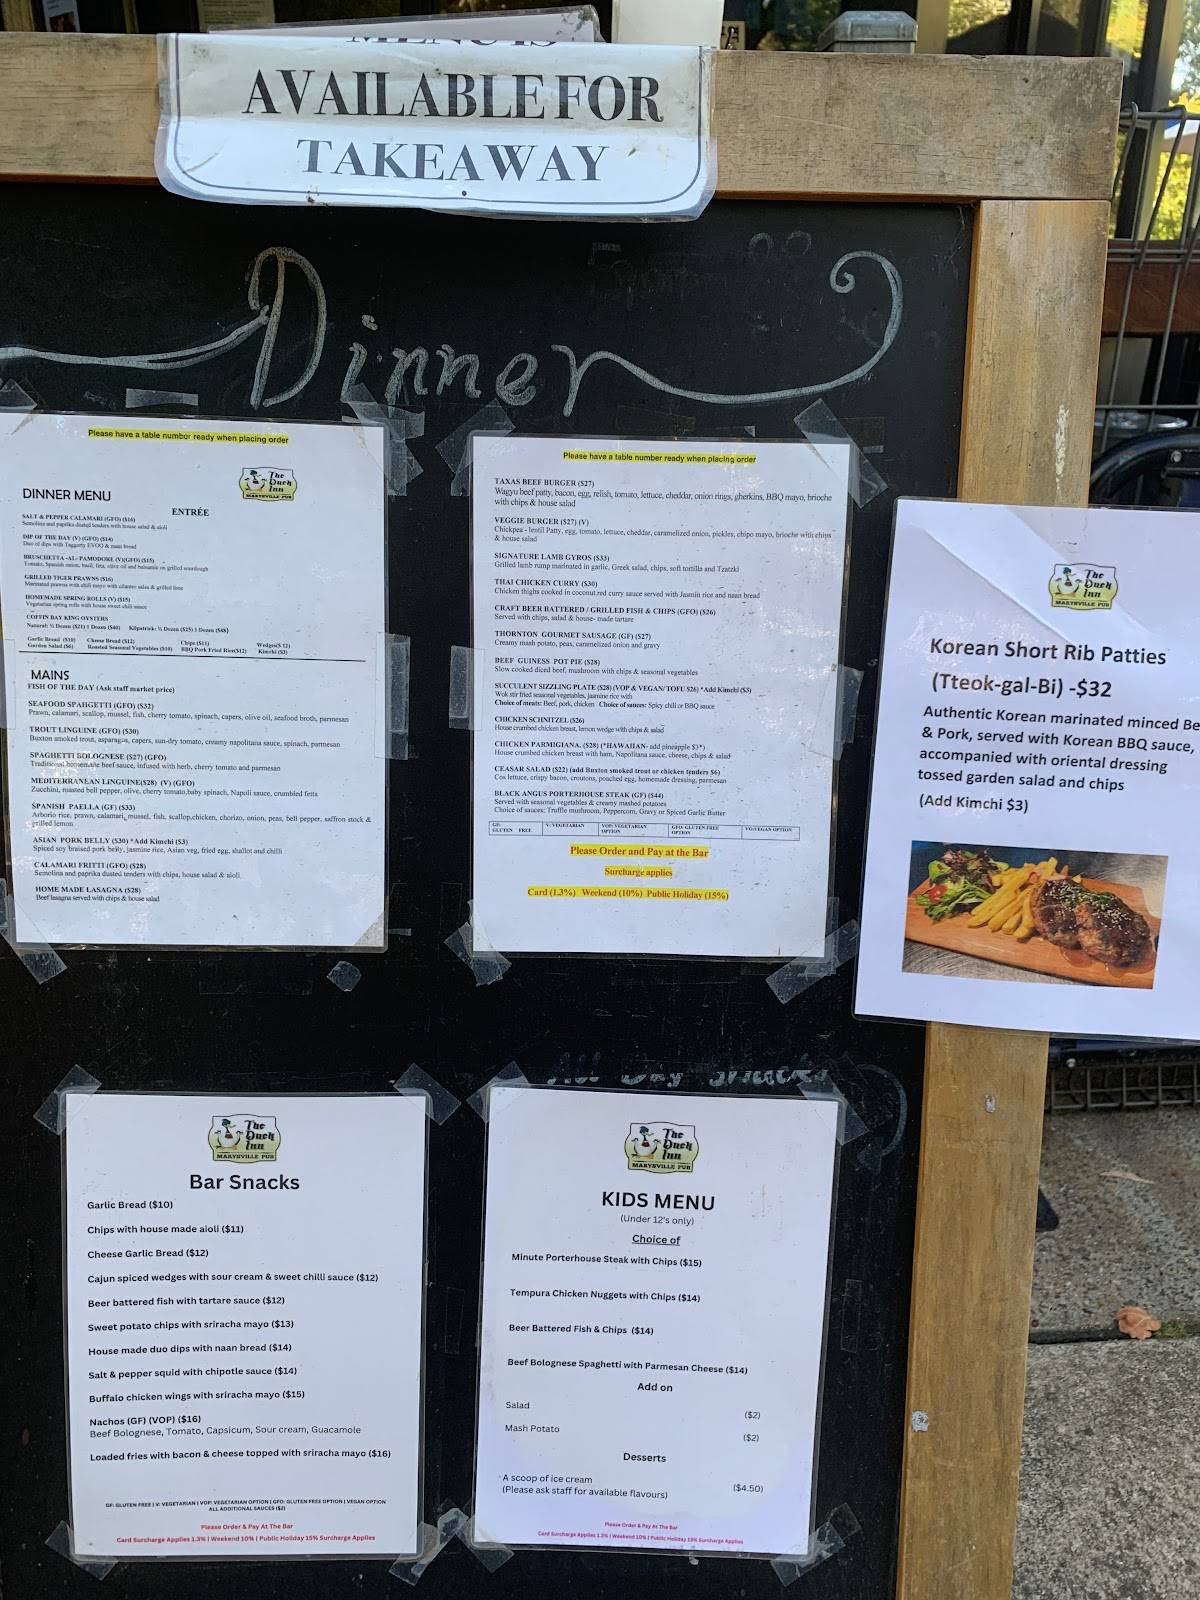 MENU IS
AVAILABLE FOR
TAKEAWAY
Dinner
Please have a table number ready when placing order
The
Duck
Inn
MARYSVILLE PUB
DINNER MENU
ENTRÉE
SALT & PEPPER CALAMARI (GFO) ($16)
Semolina and paprika dusted tenders with house salad & aioli
DIP OF THE DAY (V) (GFO) ($14)
Duo of dips with Taggerty EVOO & naan bread
BRUSCHETTA -AL- PAMODORE (V)(GFO) ($15)
Tomato, Spanish onion, basil, feta, olive oil and balsamic on grilled sourdough
GRILLED TIGER PRAWNS ($16)
Marinated prawns with chili mayo with cilantro salsa & grilled lime
HOMEMADE SPRING ROLLS (V) ($15)
Vegetarian spring rolls with house sweet chili sauce
COFFIN BAY KING OYSTERS
Natural: ½ Dozen ($21) 1 Dozen ($40) Kilpatrick: ½ Dozen ($25) 1 Dozen ($48)
Garlic Bread ($10) Cheese Bread ($12) Chips ($11) Wedges($ 12)
Garden Salad ($6) Roasted Seasonal Vegetables ($10) BBQ Pork Fried Rice($12) Kimchi ($3)
MAINS
FISH OF THE DAY (Ask staff market price)
SEAFOOD SPAHGETTI (GFO) ($32)
Prawn, calamari, scallop, mussel, fish, cherry tomato, spinach, capers, olive oil, seafood broth, parmesan
TROUT LINGUINE (GFO) ($30)
Buxton smoked trout, asparagus, capers, sun-dry tomato, creamy napolitana sauce, spinach, parmesan
SPAGHETTI BOLOGNESE ($27) (GFO)
Traditional homemade beef sauce, infused with herb, cherry tomato and parmesan
MEDITERRANEAN LINGUINE($28) (V) (GFO)
Zucchini, roasted bell pepper, olive, cherry tomato,baby spinach, Napoli sauce, crumbled fetta
SPANISH PAELLA (GF) ($33)
Arborio rice, prawn, calamari, mussel, fish, scallop,chicken, chorizo, onion, peas, bell pepper, saffron stock &
grilled lemon
ASIAN PORK BELLY ($30) *Add Kimchi ($3)
Spiced soy braised pork belly, jasmine rice, Asian veg, fried egg, shallot and chilli
CALAMARI FRITTI (GFO) ($28)
Semolina and paprika dusted tenders with chips, house salad & aioli
HOME MADE LASAGNA ($28)
Beef lasagna served with chips & house salad
Please have a table number ready when placing order
TAXAS BEEF BURGER ($27)
Wagyu beef patty, bacon, egg, relish, tomato, lettuce, cheddar, onion rings, gherkins, BBQ mayo, brioche
with chips & house salad
VEGGIE BURGER ($27) (V)
Chickpea - lentil Patty, egg, tomato, lettuce, cheddar, caramelized onion, pickles, chipo mayo, brioche with chips
& house salad
SIGNATURE LAMB GYROS ($33)
Grilled lamb rump marinated in garlic, Greek salad, chips, soft tortilla and Tzatzki
THAI CHICKEN CURRY ($30)
Chicken thighs cooked in coconut red curry sauce served with Jasmin rice and naan bread
CRAFT BEER BATTERED / GRILLED FISH & CHIPS (GFO) ($26)
Served with chips, salad & house- made tartare
THORNTON GOURMET SAUSAGE (GF) ($27)
Creamy mash potato, peas, caramelized onion and gravy
BEEF GUINESS POT PIE ($28)
Slow cooked diced beef, mushroom with chips & seasonal vegetables
SUCCULENT SIZZLING PLATE ($28) (VOP & VEGAN/TOFU $26) *Add Kimchi ($3)
Wok stir fried seasonal vegetables, Jasmine rice with
Choice of meats: Beef, pork, chicken Choice of sauces: Spicy chili or BBQ sauce
CHICKEN SCHNITZEL ($26)
House crumbed chicken breast, lemon wedge with chips & salad
CHICKEN PARMIGIANA. ($28) (*HAWAIIAN- add pineapple $3*)
House crumbed chicken breast with ham, Napolitana sauce, cheese, chips & salad
CEASAR SALAD ($22) (add Buxton smoked trout or chicken tenders $6)
Cos lettuce, crispy bacon, croutons, poached egg, homemade dressing, parmesan
BLACK ANGUS PORTERHOUSE STEAK (GF) ($44)
Served with seasonal vegetables & creamy mashed potatoes
Choice of sauces: Truffle mushroom, Peppercorn, Gravy or Spiced Garlic Butter
GF: GLUTEN FREE V: VEGETARIAN VOP: VEGETARIAN OPTION GFO: GLUTEN FREE OPTION VO:VEGAN OPTION
Please Order and Pay at the Bar
Surcharge applies
Card (1.3%) Weekend (10%) Public Holiday (15%)
The
Duck
Inn
MARYSVILLE PUB
Korean Short Rib Patties
(Tteok-gal-Bi) -$32
Authentic Korean marinated minced Be
& Pork, served with Korean BBQ sauce,
accompanied with oriental dressing
tossed garden salad and chips
(Add Kimchi $3)
All Day Snacks
The
Duck
Inn
MARYSVILLE PUB
Bar Snacks
Garlic Bread ($10)
Chips with house made aioli ($11)
Cheese Garlic Bread ($12)
Cajun spiced wedges with sour cream & sweet chilli sauce ($12)
Beer battered fish with tartare sauce ($12)
Sweet potato chips with sriracha mayo ($13)
House made duo dips with naan bread ($14)
Salt & pepper squid with chipotle sauce ($14)
Buffalo chicken wings with sriracha mayo ($15)
Nachos (GF) (VOP) ($16)
Beef Bolognese, Tomato, Capsicum, Sour cream, Guacamole
Loaded fries with bacon & cheese topped with sriracha mayo ($16)
GF: GLUTEN FREE | V: VEGETARIAN | VOP: VEGETARIAN OPTION | GFO: GLUTEN FREE OPTION | VEGAN OPTION
ALL ADDITIONAL SAUCES ($2)
Please Order & Pay At The Bar
Card Surcharge Applies 1.3% | Weekend 10% | Public Holiday 15% Surcharge Applies
The
Duck
Inn
MARYSVILLE PUB
KIDS MENU
(Under 12's only)
Choice of
Minute Porterhouse Steak with Chips ($15)
Tempura Chicken Nuggets with Chips ($14)
Beer Battered Fish & Chips ($14)
Beef Bolognese Spaghetti with Parmesan Cheese ($14)
Add on
Salad ($2)
Mash Potato ($2)
Desserts
A scoop of ice cream
(Please ask staff for available flavours) ($4.50)
Please Order & Pay At The Bar
Card Surcharge Applies 1.3% | Weekend 10% | Public Holiday 15% Surcharge Applies